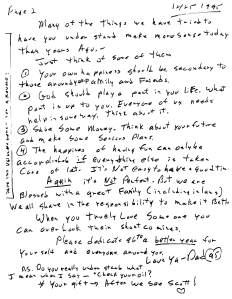 Page 2
12/25/1995
Many of the things we have tried to
have you understand make more sense today
than years Ago.-
Just think of some of them
① Your own happiness should be secondary to
those around you-Family and Friends.
② God should play a part in your Life. What
part is up to you. Everyone of us needs
help in some way. Think about it.
③ Save Some Money. Think about your future
and make some Serious Plans.
④ The happiness of having fun can only be
accomplished if everything else is taken
Care of 1st. It's Not easy to have a good Tim
Again it's Not Perfect. But we are
Blessed with a great Family (including
We all share in the responsibility to make it Bett
When you truely Love Someone you
can over look their short comings.
Please dedicate 96 to a better year for
Yourself and everyone around you.
Love Ya-Dad
P.S. Do you really understand what
I mean when I say - "Check your oil?
* Your gift → After we see Scott!